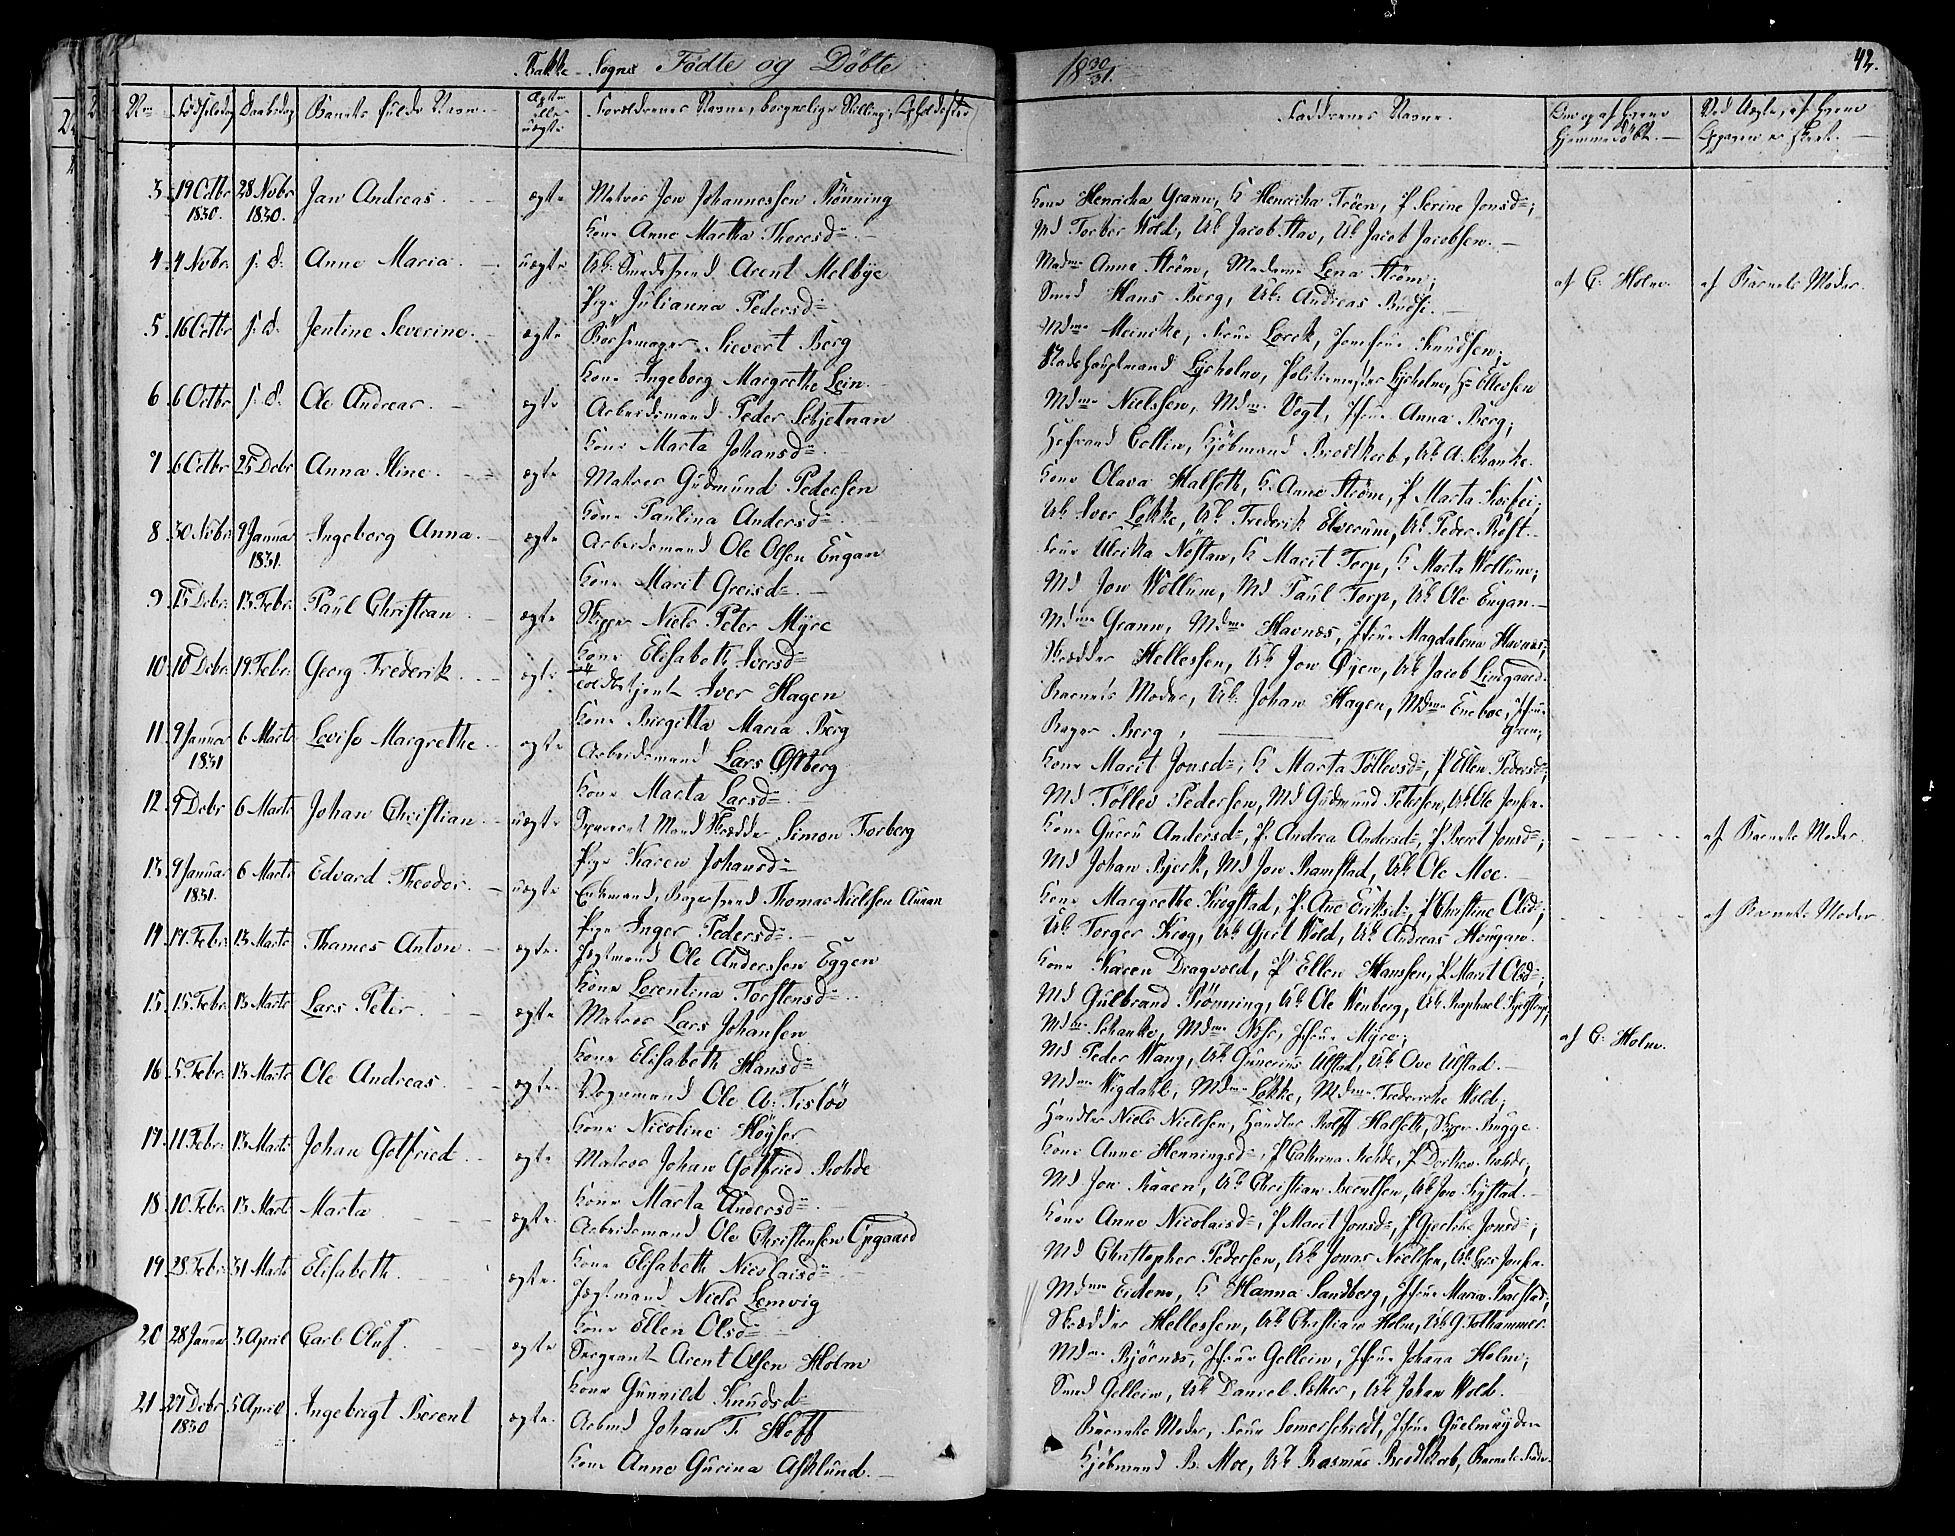 Bakke Sogns Fødte og Döbte 18 30/31. 42.
No Födselsdag Daabsdag Barnets fulde Navn. Ægte eller uægte Forældrenes Navne, borgerlige Stilling, Opholdssted
Faddernes Navne. Hjemmedöbt.
3. 19 Octbr 1830. 28 Novbr 1830. Jan Andreas. ægte Matros Jon Johannessen Rönning
Kone Anne Martha Thoresd.
Kone Henricha Grann, K Henricha Tröen, P Serine Jonsd;
Md Torber Wold, Uk Jacob Stav, Uk Jacob Jacobsen.
4. 4 Novbr. s. d. Anne Maria. uægte Uk: Smedesvend Arent Melbye
Pige Julianna Pedersd
Mdme Anne Ström, Madame Lena Ström;
Smed Hans Berg, Uk: Andreas
af C. Holm. af Barnets Moder.
5. 16 Octbr s. d. Jentine Severine. ægte Bössemager Sievert Berg
Kone Ingeborg Margrethe Lein.
Mdme Meincke, Frue Lorck, Jomfrue Knudsen;
Stadshauptmand Lysholm, Politiemester Lysholm, Hr Ellevsen
6. 6 Octbr s. d. Ole Andreas. ægte Arbeidsmand Peder Schjetnan
Kone Marta Johansd
Mdme Nielssen, Mdme Vogt, Jfrue Anna Berg;
Collin, Kjöbmand Brodtkorb, Uk A. Schanke.
7. 6 Octbr 25 Debr Anna Stine. ægte Matros Gudmund Pedersen
Kone Paulina Andersd
Kone Olava Halseth, K. Anne Ström, P Marta
Uk Iver Løkke, Uk Frederik Elverum, Uk Peder Röst.
8. 30 Novbr. 9 Januar 1831. Ingeborg Anna. ægte Arbeidsmand Ole Olsen Engan
Kone Marit
Frue Ulrika Nöstan, K Marit Torp, K Marta Wollum;
Md Jon Wollum, Md Paul Torp, Uk Ole Engan.
9. 15 Debr. 13 Febr. Paul Christian. ægte Skipper Niels Peter Myre
Kone Elisabeth Iversd
Mdme Grann, Mdme Havnæs, Jfrue Magdalena Havnæs;
Skrædder Hellessen, Uk Jon Øyen, Uk Jacob Lindgaard.
10. 10 Debr. 19 Febr. Georg Frederik. ægte Toldbetjent Iver Hagen
Kone Birgitta Maria Berg
Barnets Moder, Uk: Johan Hagen, Mdme Eneboe, Jfrue Green;
Bager Berg,
11. 9 Januar 1831 6 Marts Lovise Margrethe ægte Arbeidsmand Lars Østberg
Kone Marta Larsd
Kone Marit Jonsd, K Marta Töllevsd, P Ellen Pedersd;
Md Töllev Pedersen, Md Gudmund Petersen, Uk Ole Jonsen.
12. 9 Debr 6 Marts Johan Christian. uægte Mand Skrædder Simon Forberg
Pige Karen Johansd
Kone Guren Andersd, P. Andrea Andersd, P Beret Jonsd;
Md Johan Bjerk, Md Jon Ramstad, Uk Ole Moe.
af Barnets Moder.
13. 9 Januar 1831. 6 Marts Edvard Theodor. uægte Enkemand, Thomas Nielssen Aunan
Pige Inger Pedersd.
Kone Margrethe Krogstad, P. Ane Eriksd, P Christine Olsd;
Uk Torger Krog, Uk Gjert Wold, Uk Andreas Hougan.
af Barnets Moder.
14. 17 Febr. 13 Marts Thames Anton. ægte Jægtmand Ole Anderssen Eggen
Kone Lorentina Torstensd.
Kone Karen Dragvold, P Ellen Hanssen, P Marit Olsd;
Md Gulbrand Rönning, Uk Ole Wenberg, Uk Raphael Kjelstrup,
15. 15 Febr. 13 Marts Lars Peter. ægte Matros Lars Johansen
Kone Elisabeth Hansd
Mdme Schanke, Mdme Næss, Jfrue Myre;
Md Peder Wang, Uk Gunerius Ulstad, Uk Ove Ulstad.
af C. Holm.
16. 5 Febr. 13 Marts Ole Andreas. ægte Vognmand Ole A. Tislöv
Kone Nicoline Höyser
Mdme Wigdahl, Mdme Løkke, Mdme Frederikke Wold;
Handler Niels Nielssen, Handler Rolff Halseth, Skipper Bugge.
17. 11 Febr. 13 Marts Johan Gotfried. ægte Matros Johan Gotfried Rohde
Kone Marta Andersd
Kone Anne Henningsd, P Cathrina Rohde, P Dorthea Rohde;
Md Jon Raaen, Uk Christian Berntsen, Uk Jon Rystad.
18. 10 Febr. 13 Marts Marta ægte. Arbeidsmand Ole Christensen Opgaard
Kone Elisabeth Nicolaisd
Kone Anne Nicolaisd, P Marit Jonsd, P Gjertrue Jonsd;
Md Christopher Pedersen, Uk Jonas Nielsen, Uk Lars Jonsen.
19. 28 Febr. 31 Marts Elisabeth. ægte. Jægtmand Niels Lemvig
Kone Ellen Olsd
Mdme Eidem, K Hanna Sandberg, Jfrue Maria Barstad;
Skrædder Hellessen, Uk Christian Holm, Uk G. Folthammer.
20 28 Januar 3 April Carl Oluf ægte. Sergeant Arent Olsen Holm
Kone Gunnild Knudsd
Mdme Bjørnæs, Jfrue Gellein, Jfrue Johana Holm;
Smed Gellein, Uk Daniel Sæther, Uk Johan Wold.
21. 27 Debr 1830 5 April Ingebrigt Berent ægte. Arbmd Johan F. Hoff
Kone Anne Gurina Asklund.
Barnets Moder, Frue Somerschildt, Jfrue Quelmeyden
Kjöbmand B. Moe, Uk Rasmus Brodtkorb, Barnets Fader